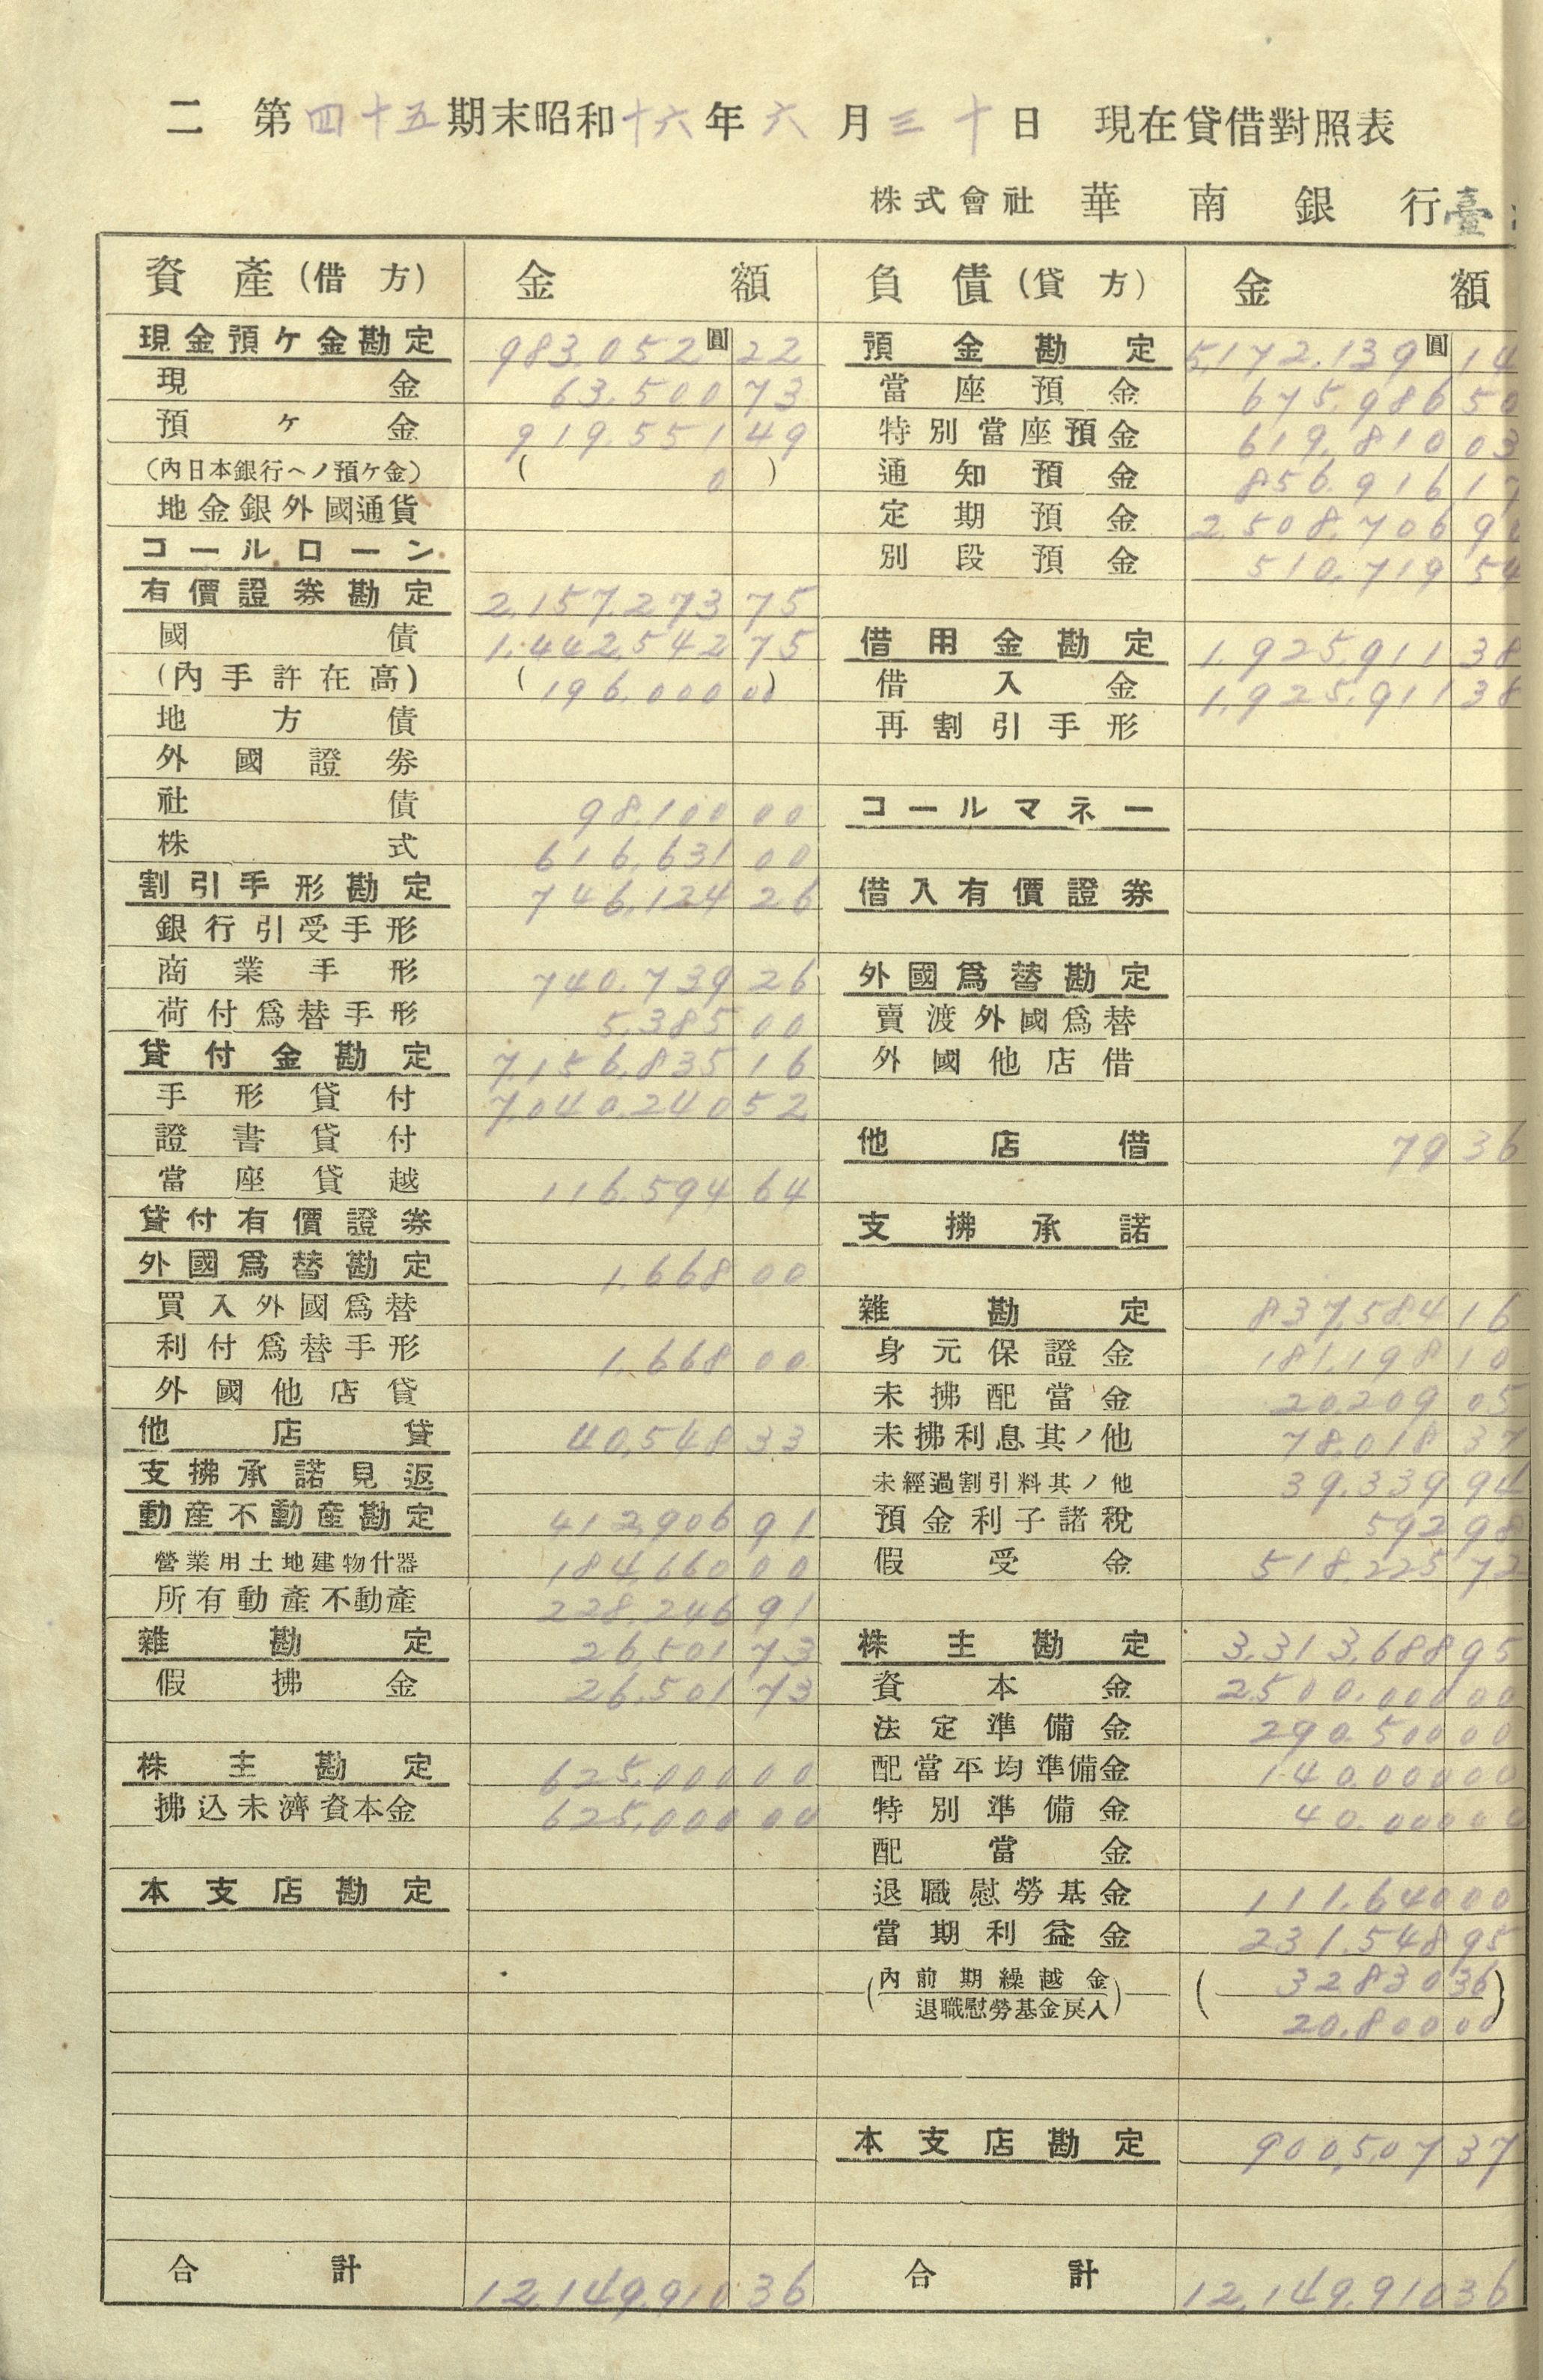 二 第四十五期末昭和十六年六月三十日 現在貸借對照表
株式會社 華南銀行臺
資產(借方) 金額 負債(貸方) 金額
現金預ケ金勘定 983,052圓22 預金勘定 5,172,139圓14
現金 63,500 73 當座預金 675,986 50
預ケ金 919,551 49 特別當座預金 619,810 03
(內日本銀行ヘノ預ケ金) ( 0 ) 通知預金 856,916 17
地金銀外國通貨 定期預金 2,508,706 90
コールローン 別段預金 510,719 54
有價證券勘定 2,157,273 75
國債 1,442,542 75 借用金勘定 1,925,911 38
(內手許在高) (196,000 00) 借入金 1,925,911 38
地方債 再割引手形
外國證券
社債 98,100 00 コールマネー
株式 616,631 00
割引手形勘定 746,124 26 借入有價證券
銀行引受手形
商業手形 740,739 26 外國爲替勘定
荷付爲替手形 5,385 00 賣渡外國爲替
貸付金勘定 7,156,835 16 外國他店借
手形貸付 7,040,240 52
證書貸付 他店借 79 36
當座貸越 116,594 64
貸付有價證券 支拂承諾
外國爲替勘定 1,668 00
買入外國爲替 雜勘定 837,584 16
利付爲替手形 1,668 00 身元保證金 181,198 10
外國他店貸 未拂配當金 20,209 05
他店貸 40,548 33 未拂利息其ノ他 78,018 37
支拂承諾見返 未經過割引料其ノ他 39,339 94
動產不動產勘定 412,906 91 預金利子諸稅 592 98
營業用土地建物什器 184,660 00 假受金 518,225 72
所有動產不動產 228,246 91
雜勘定 26,501 73 株主勘定 3,313,688 95
假拂金 26,501 73 資本金 2,500,000 00
法定準備金 290,500 00
株主勘定 625,000 00 配當平均準備金 140,000 00
拂込未濟資本金 625,000 00 特別準備金 40,000 00
配當金
本支店勘定 退職慰勞基金 111,640 00
當期利益金 231,548 95
(內前期繰越金 (32830 36
退職慰勞基金戾入) 20,800 00)
本支店勘定 900,507 37
合計 12,149,910 36 合計 12,149,910 36